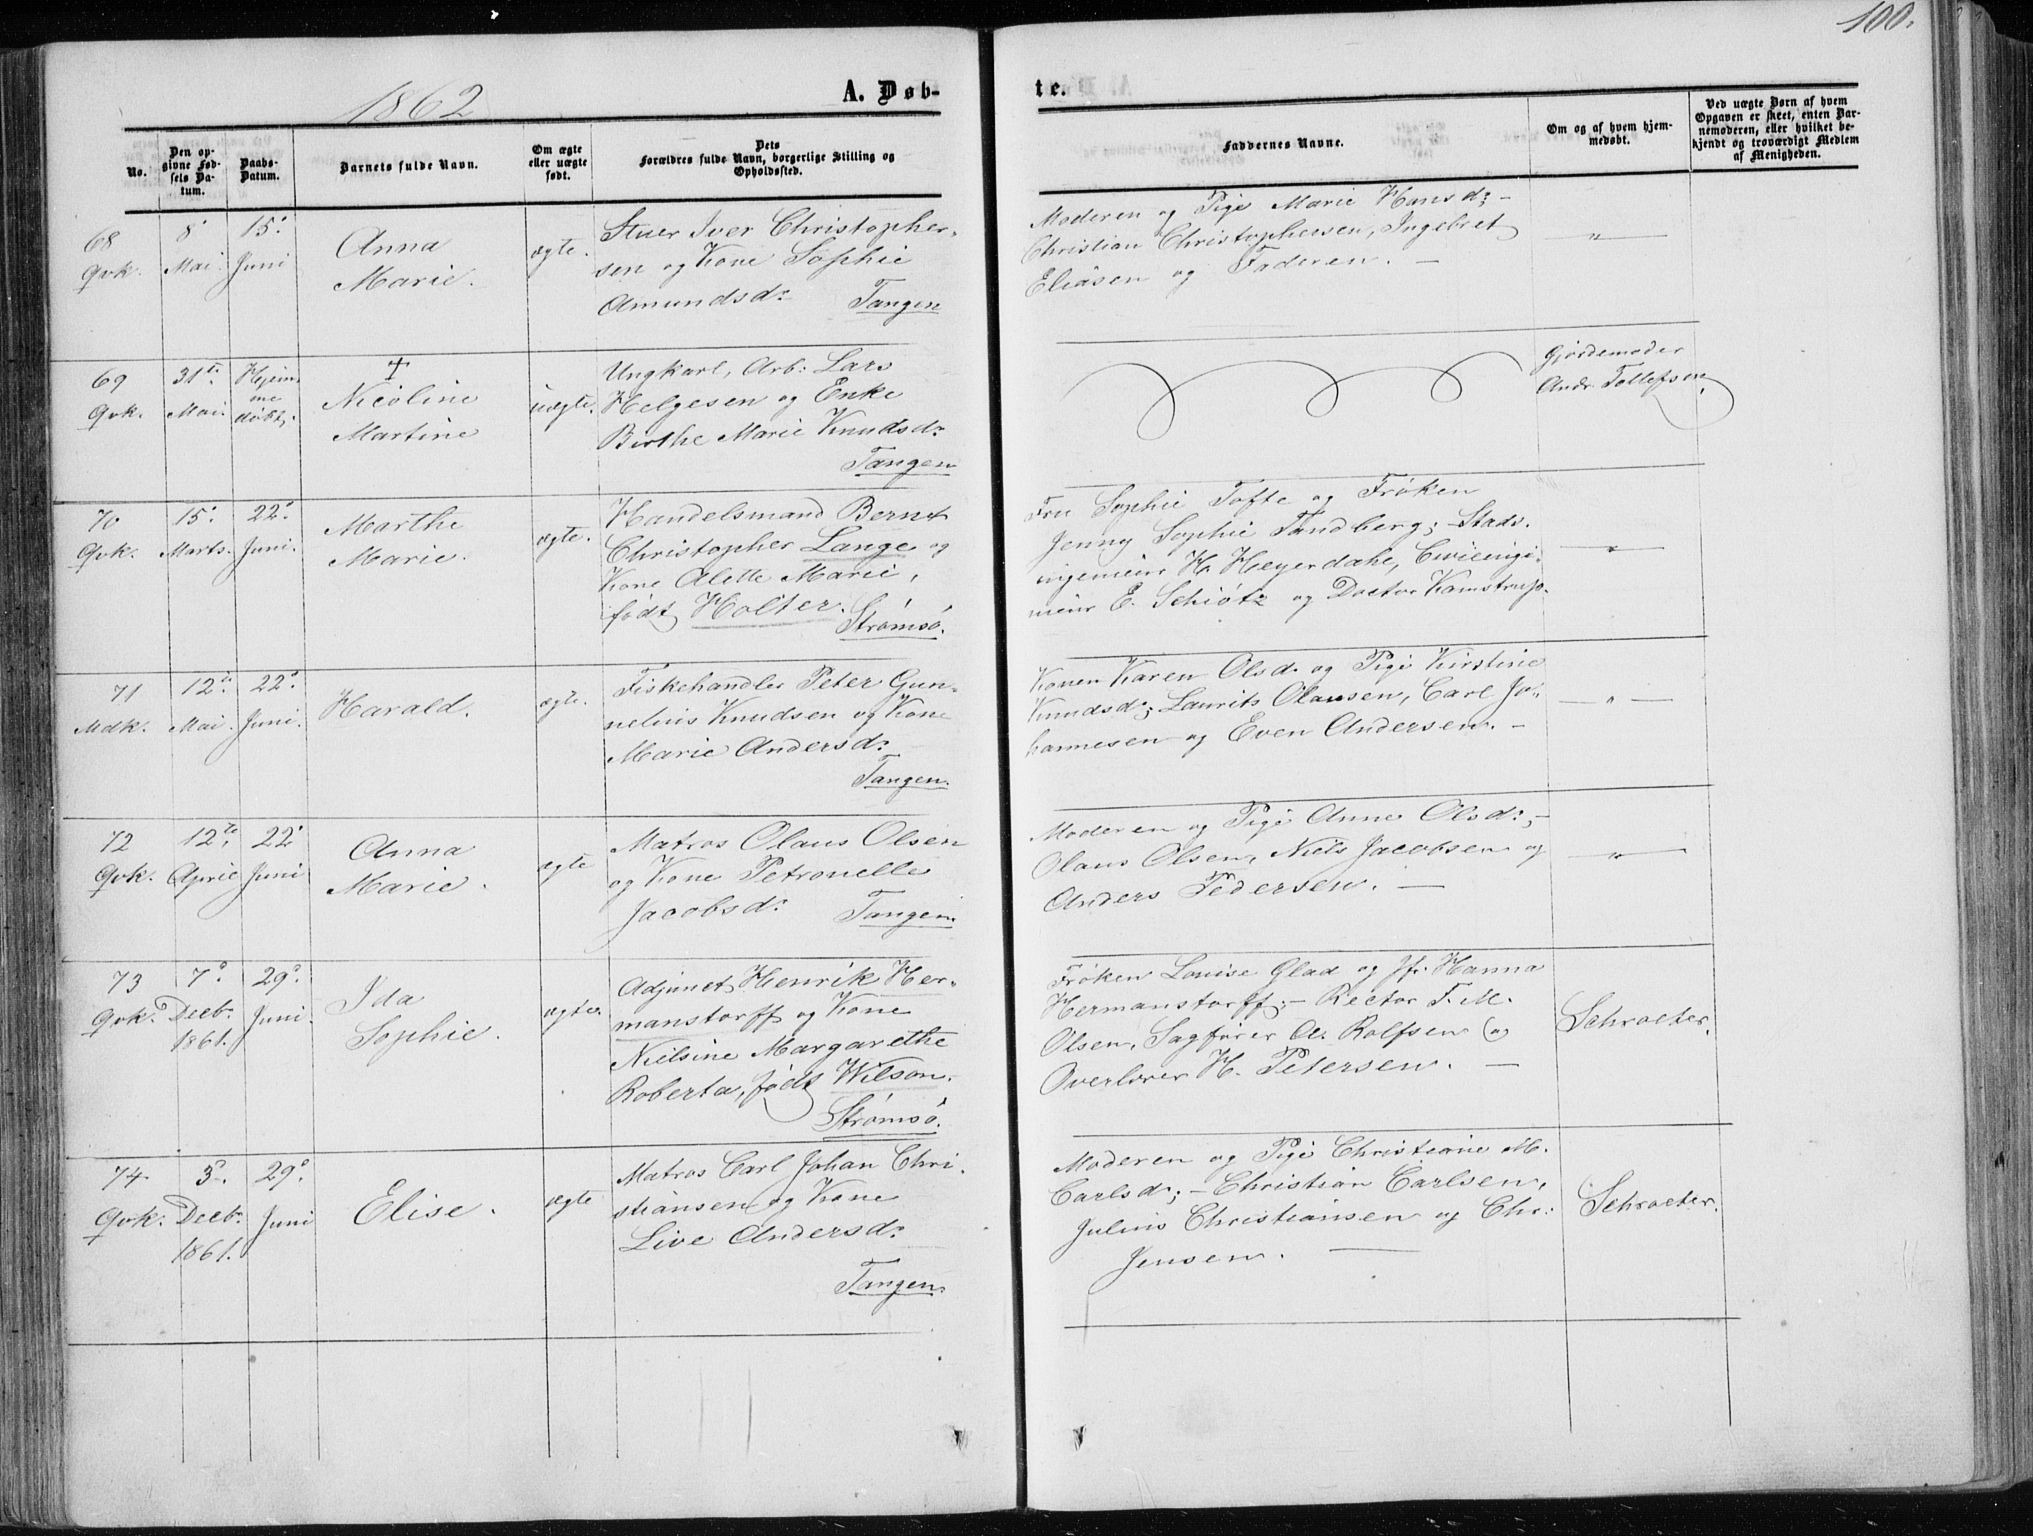 100.
1862
A. Døb-
te.
No.
Den op-
givne Fød-
sels Da-
tum.
Daabs-
Datum.
Barnets fulde Navn.
Om ægte
eller uægte
født.
Dets
Forældres fulde Navn, borgerlige Stilling og
Opholdssted.
Faddernes Navne.
Om og af hvem hjem-
medøbt.
Ved uægte Børn af hvem
Opgaven er skeet, enten Bar-
nemoderen, eller hvilket be-
kjendt og troværdigt Medlem
af Menigheden.
68
Qvk.
8
Mai.
15.
Juni
Anna
Marie.
ægte.
Stuer Iver Christopher-
sen og Kone Sophie
Amundsd.
Tangen
Moderen og Pige Marie Hansd; -
Christian Christophersen, Ingebret
Eliasen og Faderen. -
— " —
69
Qvk.
31te
Mai.
Hjem
me
døbt.
†
Nicoline
Martine
uægte.
Ungkarl, Arb: Lars
Helgesen og Enke
Birthe Marie Knudsd.
Tangen
Gjordemoder
Andr. Tollefsen
70
Qvk.
15.
Marts.
22.
Juni.
Marthe
Marie.
ægte.
Handelsmand Bernt
Christopher Lange og
Kone Alette Marie,
født Holter.
Strømsø.
Fru Sophie Tofte og Frøken
Jenny Sophie Tandberg; - Stads-
ingenieur H. Heyerdahl, Civilingi-
nieur E. Schiøtz og Doctor Kamstrup.
— " —
71
Mdk.
12te
Mai.
22.
Juni.
Harald.
ægte.
Fiskehandler Peter Gun-
nelius Knudsen og Kone
Marie Andersd.
Tangen.
Konen Karen Olsd. og Pige Kirstine
Knudsd; Laurits Olausen, Carl Jo-
hannesen og Even Andersen. -
— " —
72
Qvk.
12te
April
22
Juni
Anna
Marie.
ægte
Matros Olaus Olsen
og Kone Petronelle
Jacobsd.
Tangen
Moderen og Pige Anne Olsd; -
Olaus Olsen, Niels Jacobsen og
Anders Pedersen. —
— " —
73
Qvk.
7.
Decb.
1861.
29.
Juni.
Ida
Sophie.
ægte.
Adjunct Henrik Her-
manstorff og Kone
Nielsine Margarethe
Roberta, født Wilson.
Strømsø.
Frøken Louise Glad og Jfr. Hanna
Hermanstorff; - Rector F. M.
Olsen, Sagfører A. Rolfsen og
Overlærer H. Petersen. —
Schroeter.
74
Qvk.
3.
Decb.
1861.
29.
Juni
Elise.
ægte
Matros Carl Johan Chri-
stiansen og Kone
Live Andersd.
Tangen.
Moderen og Pige Christiane M.
Carlsd; - Christian Carlsen,
Julius Christiansen og Chr:
Jensen. —
Schroeter.